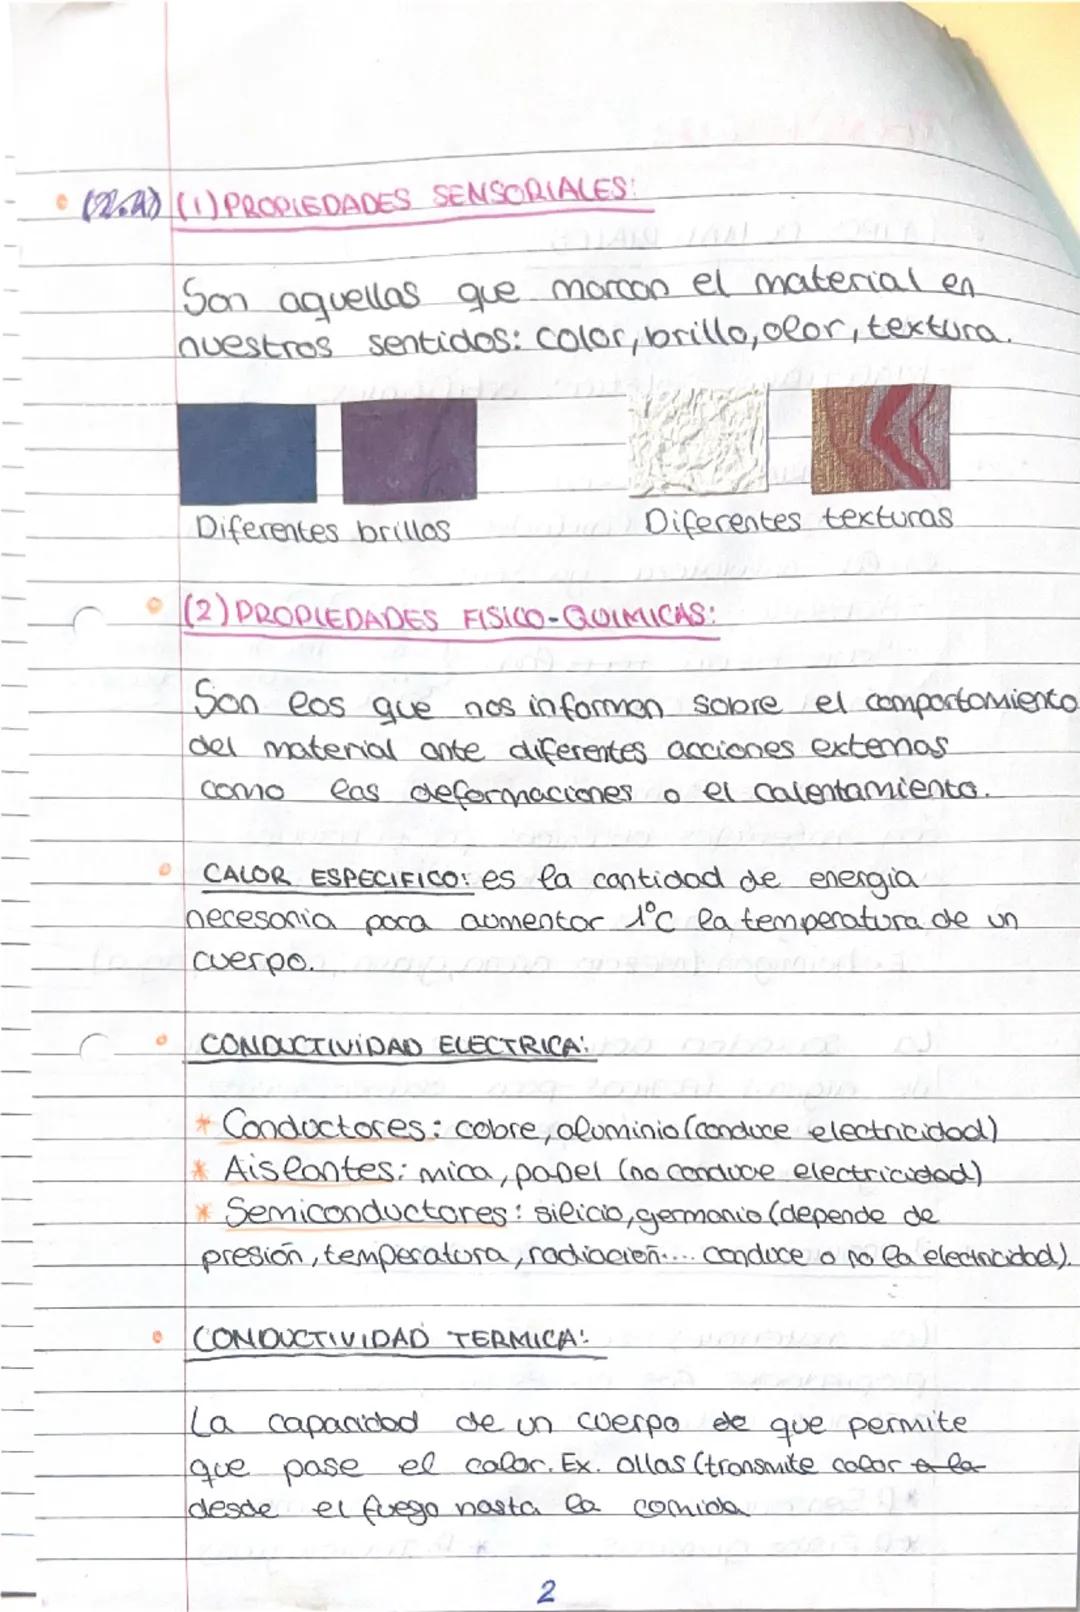 (1) PROPIEDADES SENSORIALES:
Son aquellas que marcan el material en
nuestros sentidos: color, brillo, olor, textura.
Diferentes brillos
Diferentes texturas
(2) PROPIEDADES FISICO-QUIMICAS:
Son los que nos informan sobre el comportamiento
del material ante diferentes acciones externas
como las deformaciones o el calentamiento.
CALOR ESPECIFICO: es la cantidad de energia
necesaria para aumentar 1°C la temperatura de un
cuerpo.
CONDUCTIVIDAD ELECTRICA:
* Conductores: cobre, aluminio (conduce electricidad)
* Aislantes: mica, papel (no conduce electricidad)
* Semiconductores: silicio, germanio (depende de
presión, temperatura, radiación.... conduce o no la electricidad).
CONDUCTIVIDAD TERMICA:
La capacidad de un cuerpo de que permite
que pase el calor. Ex. ollas (transmite calor a la
desde el fuego hasta la comida
2